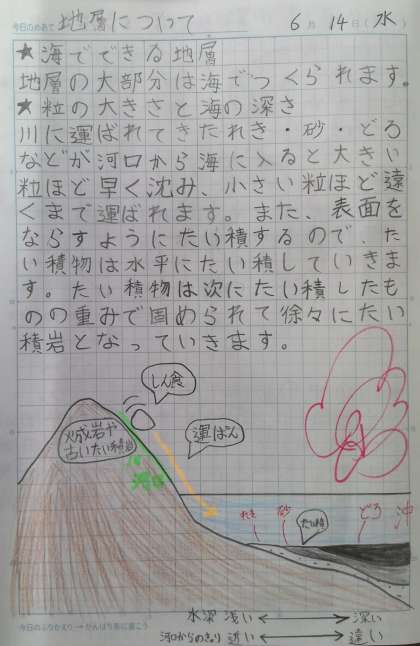 今日のめあて 地層について 6月14日(水)
★海でできる地層
地層の大部分は海でつくられます。
★粒の大きさと海の深さ
川に運ばれてきたれき・砂・どろ
などが河口から海に入ると大きい
粒ほど早く沈み、小さい粒ほど遠
くまで運ばれます。また、表面を
ならすようにたい積するので、た
い積物は水平にたい積していきま
す。たい積物は次にたい積したも
のの重みで固められて徐々にたい
積岩となっていきます。
しん食
火成岩や
古いたい積岩
運ぱん
れき 砂 どろ 沖
たい積
水深 浅い ⟷ 深い
河口からのきょり 近い ⟷ 遠い
今日のふりかえり→がんばり表に書こう